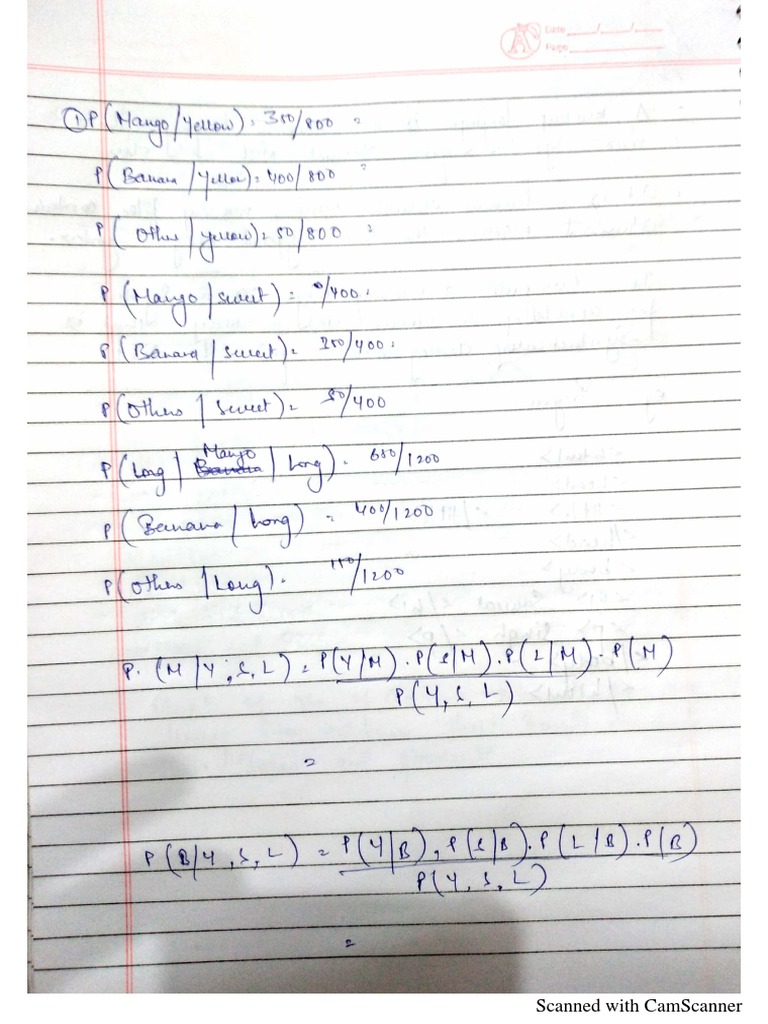 Date ___/___/___
Page
① P(Mango/Yellow) = 350/800 =
P(Banana/Yellow) = 400/800 =
P(Other/yellow) = 50/800 =
P(Mango/sweet) = 0/400 =
P(Banana/sweet) = 350/400 =
P(Others/sweet) = 50/400
P(Long/ Mango Banana / Long) = 650/1200
P(Banana/Long) = 400/1200
P(Others/Long) = 150/1200
P. (M/Y, S, L) = P(Y/M) . P(S/M) . P(L/M) . P(M)
P(Y, S, L)
=
P(B/Y, S, L) = P(Y/B), P(S/B) . P(L/B) . P(B)
P(Y, S, L)
=
Scanned with CamScanner